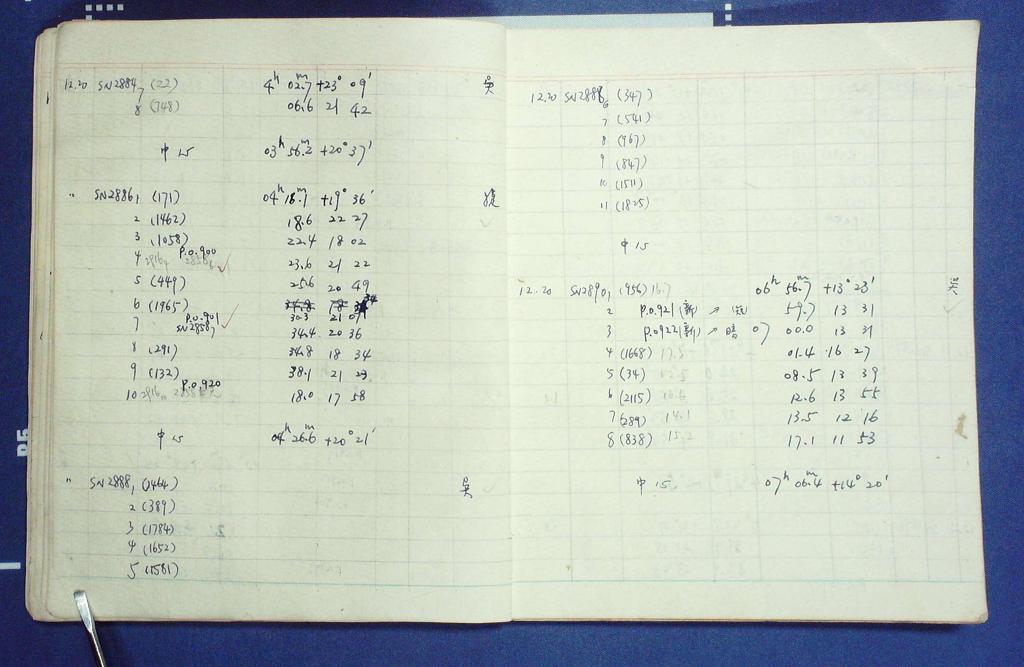 12.20 SN2884₇ (22) 4ʰ 02.ᵐ7 +23° 09′ 吴
8 (748) 06.6 21 42
中 15 03ʰ 56.ᵐ2 +20° 37′
〃 SN2886₁ (171) 04ʰ 18.ᵐ7 +19° 36′
2 (1462) 18.6 22 27
3 (1058) 22.4 18 02
4 P.O.900 23.6 21 22
5 (449) 25.6 20 49
6 (1965) 34
7 P.O.901 30.3 21 07
SN2858₇ 34.4 20 36
8 (291) 34.8 18 34
9 (132) 38.1 21 23
10 P.O.920 18.0 17 58
中 15 04ʰ 26.ᵐ6 +20° 21′
〃 SN2888₁ (1464) 吴
2 (389)
3 (1784)
4 (1652)
5 (1581)
12.20 SN2888₆ (347)
7 (541)
8 (967)
9 (847)
10 (1511)
11 (1825)
中 15
12.20 SN2890₁ (956) 16.7 06ʰ 56.ᵐ7 +13° 23′
2 P.O.921 (新) ↗ 59.7 13 31
3 P.O.922 (新) ↗ 暗 07 00.0 13 31
4 (1668) 17.5 01.4 16 27
5 (34) 08.5 13 39
6 (2115) 12.6 13 55
7 (289) 14.1 13.5 12 16
8 (838) 15.2 17.1 11 53
中 15 07ʰ 06.ᵐ4 +14° 20′